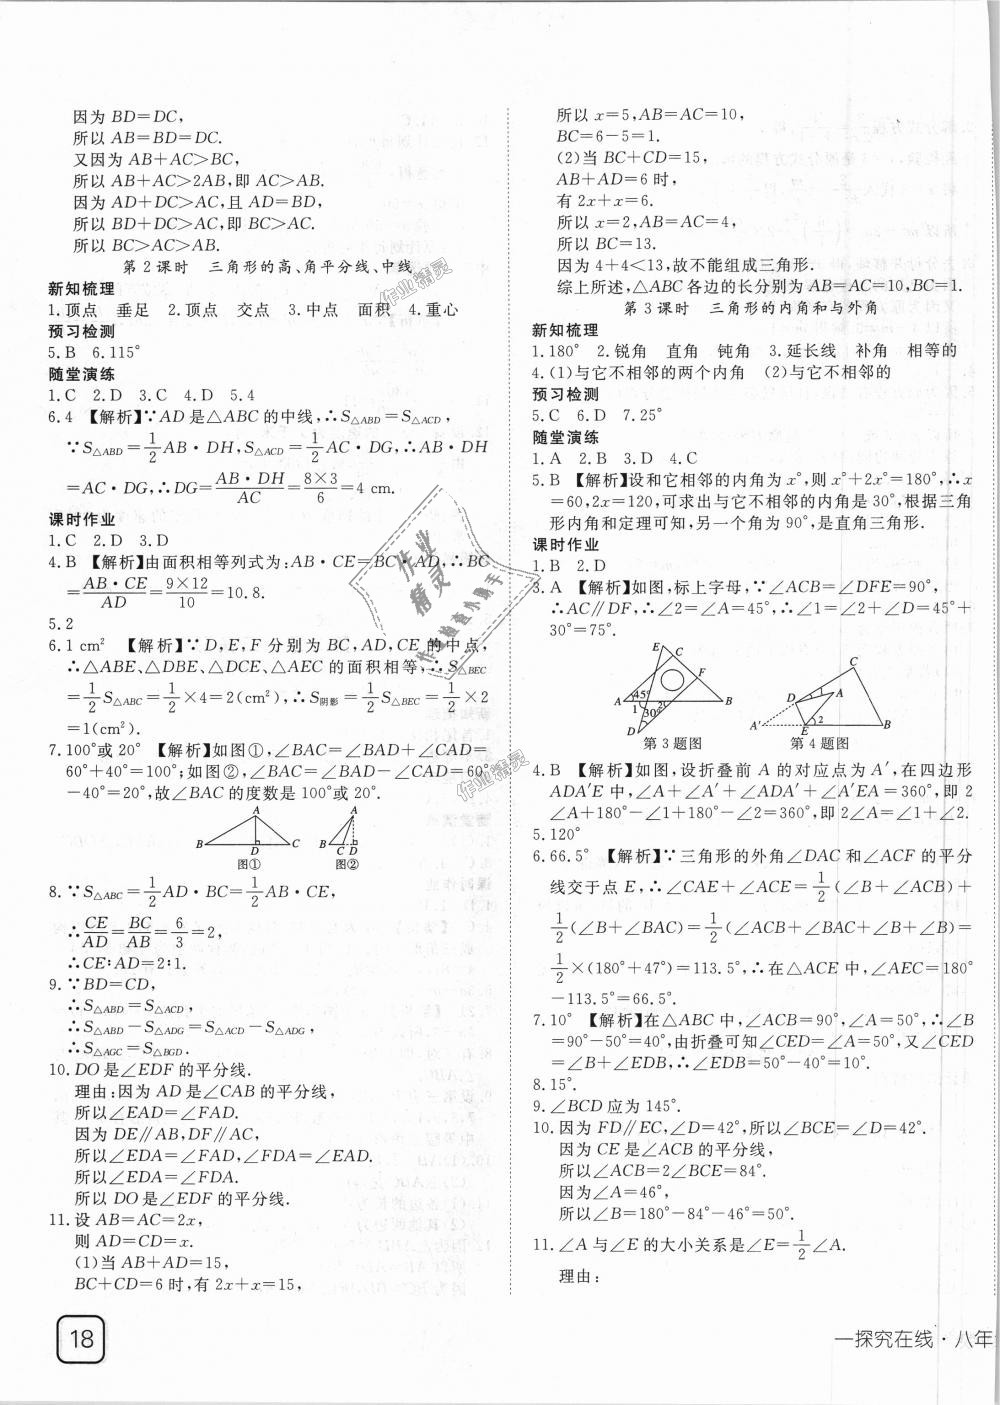 因为 BD=DC,
所以 AB=BD=DC.
又因为 AB+AC>BC,
所以 AB+AC>2AB,即 AC>AB.
因为 AD+DC>AC,且 AD=BD,
所以 BD+DC>AC,即 BC>AC.
所以 BC>AC>AB.
第2课时 三角形的高、角平分线、中线
新知梳理
1.顶点 垂足 2.顶点 交点 3.中点 面积 4.重心
预习检测
5.B 6.115°
随堂演练
1.C 2.D 3.C 4.D 5.4
6.4 【解析】∵AD 是△ABC 的中线,∴S△ABD=S△ACD,
∵S△ABD=1/2 AB·DH,S△ACD=1/2 AC·DG,∴AB·DH
=AC·DG,∴DG=AB·DH/AC=8×3/6=4 cm.
课时作业
1.C 2.D 3.D
4.B 【解析】由面积相等列式为:AB·CE=BC·AD,∴BC
=AB·CE/AD=9×12/10=10.8.
5.2
6.1 cm² 【解析】∵D,E,F 分别为 BC,AD,CE 的中点,
∴△ABE、△DBE、△DCE、△AEC 的面积相等,∴S△BEC
=1/2 S△ABC=1/2×4=2(cm²),∴S阴影=1/2 S△BEC=1/2×2
=1(cm²).
7.100°或 20° 【解析】如图①,∠BAC=∠BAD+∠CAD=
60°+40°=100°;如图②,∠BAC=∠BAD-∠CAD=60°
-40°=20°.故∠BAC 的度数是 100°或 20°.
A
B D C
图①
A
B C D
图②
8.∵S△ABC=1/2 AD·BC=1/2 AB·CE,
∴CE/AD=BC/AB=6/3=2,
∴CE∶AD=2∶1.
9.∵BD=CD,
∴S△ABD=S△ACD,
∴S△ABD-S△ADG=S△ACD-S△ADG,
∴S△AGC=S△BGD.
10.DO 是∠EDF 的平分线.
理由:因为 AD 是∠CAB 的平分线,
所以∠EAD=∠FAD.
因为 DE∥AB,DF∥AC,
所以∠EDA=∠FAD,∠FDA=∠EAD.
所以∠EDA=∠FDA.
所以 DO 是∠EDF 的平分线.
11.设 AB=AC=2x,
则 AD=CD=x.
(1)当 AB+AD=15,
BC+CD=6 时,有 2x+x=15,
18
所以 x=5,AB=AC=10,
BC=6-5=1.
(2)当 BC+CD=15,
AB+AD=6 时,
有 2x+x=6.
所以 x=2,AB=AC=4,
所以 BC=13.
因为 4+4<13,故不能组成三角形.
综上所述,△ABC 各边的长分别为 AB=AC=10,BC=1.
第3课时 三角形的内角和与外角
新知梳理
1.180° 2.锐角 直角 钝角 3.延长线 补角 相等的
4.(1)与它不相邻的两个内角 (2)与它不相邻的
预习检测
5.C 6.D 7.25°
随堂演练
1.A 2.B 3.D 4.C
5.B 【解析】设和它相邻的内角为 x°,则 x°+2x°=180°,∴x
=60,2x=120,可求出与它不相邻的内角是 30°,根据三角
形内角和定理可知,另一个角为 90°,是直角三角形.
课时作业
1.B 2.D
3.A 【解析】如图,标上字母,∵∠ACB=∠DFE=90°,
∴AC∥DF,∴∠2=∠A=45°,∴∠1=∠2+∠D=45°+
30°=75°.
E C F
A 45° 1 2 30° B
D
第3题图
C
D 1 A
A′ E 2 B
第4题图
4.B 【解析】如图,设折叠前 A 的对应点为 A′,在四边形
ADA′E 中,∠A+∠A′+∠ADA′+∠A′EA=360°,即 2
∠A+180°-∠1+180°-∠2=360°,即 2∠A=∠1+∠2.
5.120°
6.66.5° 【解析】∵三角形的外角∠DAC 和∠ACF 的平分
线交于点 E,∴∠CAE+∠ACE=1/2(∠B+∠ACB)+
1/2(∠B+∠BAC)=1/2(∠ACB+∠BAC+∠B+∠B)=
1/2×(180°+47°)=113.5°,∴在△ACE 中,∠AEC=180°
-113.5°=66.5°.
7.10° 【解析】在△ABC 中,∠ACB=90°,∠A=50°,∴∠B
=90°-50°=40°,由折叠可知∠CED=∠A=50°,又∠CED
=∠B+∠EDB,∴∠EDB=50°-40°=10°.
8.15°.
9.∠BCD 应为 145°.
10.因为 FD∥EC,∠D=42°,所以∠BCE=∠D=42°.
因为 CE 是∠ACB 的平分线,
所以∠ACB=2∠BCE=84°.
因为∠A=46°,
所以∠B=180°-84°-46°=50°.
11.∠A 与∠E 的大小关系是∠E=1/2∠A.
理由:
一探究在线·八年
作业精灵
作业精灵
作业精灵
作业检查小助手